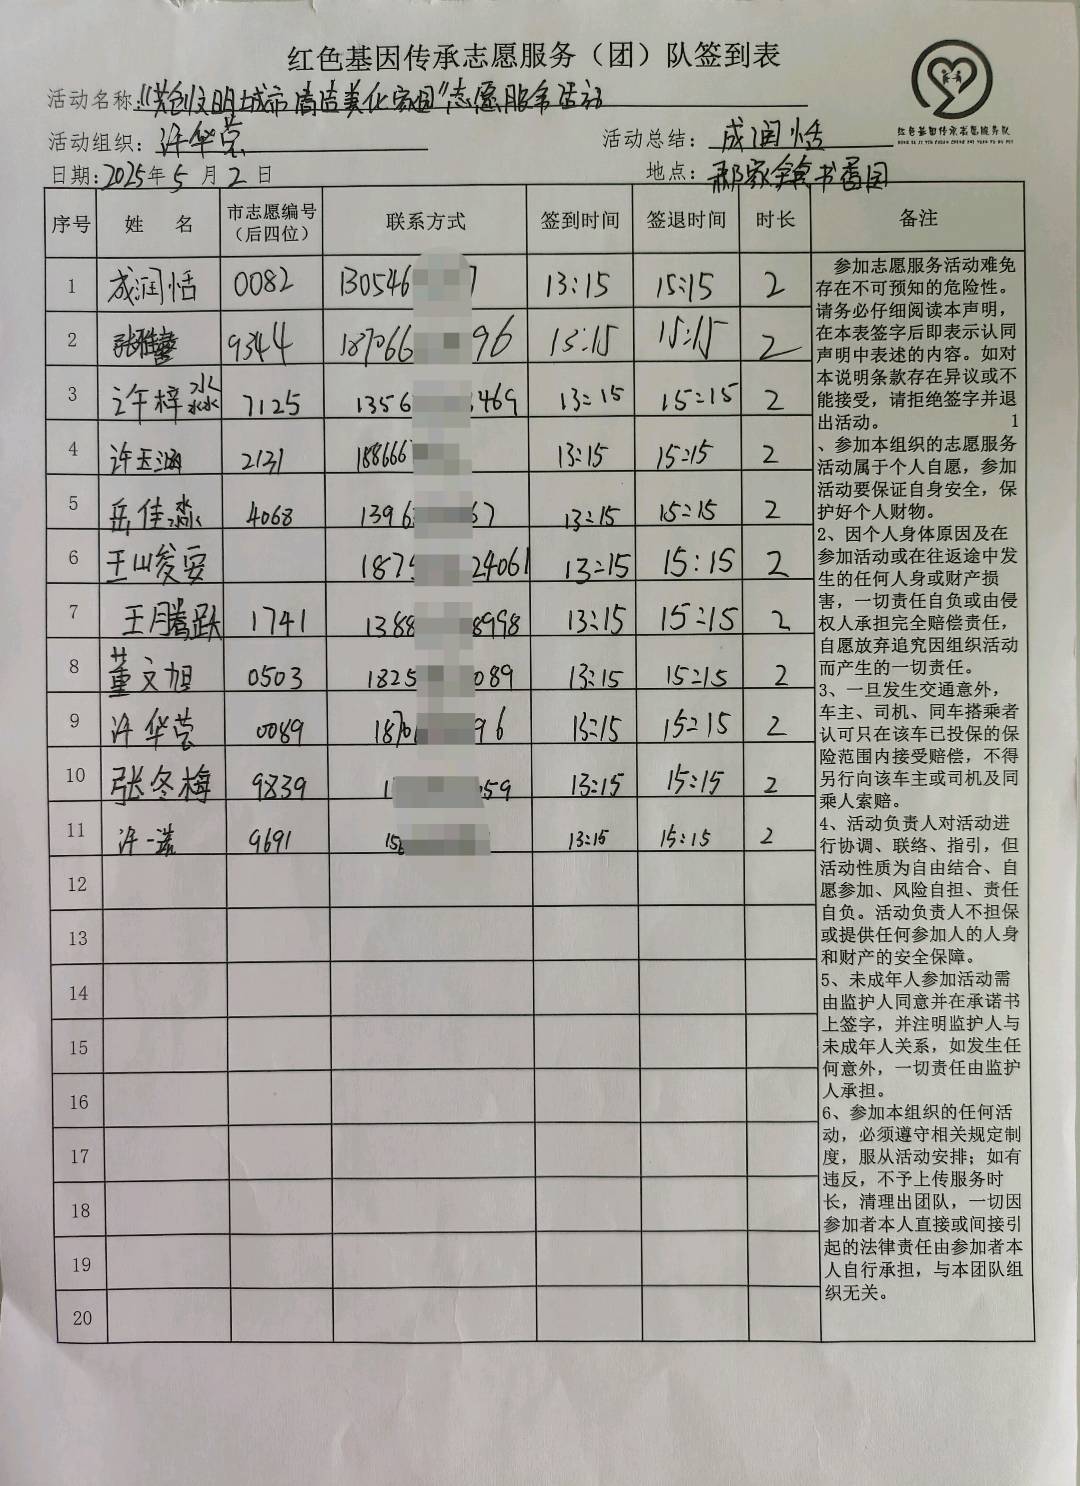 红色基因传承志愿服务（团）队签到表
活动名称：“共创文明城市 清洁美化家园”志愿服务活动
红色基因传承志愿服务队
活动组织：许华莹 活动总结：成润恬
日期：2025年5月2日 地点：郝家 书香园
序号 姓名 市志愿编号（后四位） 联系方式 签到时间 签退时间 时长 备注
1 成润恬 0082 130546 7 13:15 15:15 2
2 张雅 9344 187066 96 13:15 15:15 2
3 许梓淼 7125 1356 469 13:15 15:15 2
4 许玉涵 2131 188666 13:15 15:15 2
5 岳佳淼 4068 1396 67 13:15 15:15 2
6 王山俊安 1875 24061 13:15 15:15 2
7 王腾跃 1741 1388 8998 13:15 15:15 2
8 董文旭 0503 1825 089 13:15 15:15 2
9 许华莹 0089 1870 96 13:15 15:15 2
10 张冬梅 9839 1 059 13:15 15:15 2
11 许一诺 9691 156 13:15 15:15 2
12
13
14
15
16
17
18
19
20
参加志愿服务活动难免
存在不可预知的危险性。
请务必仔细阅读本声明，
在本表签字后即表示认同
声明中表述的内容。如对
本说明条款存在异议或不
能接受，请拒绝签字并退
出活动。 1
、参加本组织的志愿服务
活动属于个人自愿，参加
活动要保证自身安全，保
护好个人财物。
2、因个人身体原因及在
参加活动或在往返途中发
生的任何人身或财产损
害，一切责任自负或由侵
权人承担完全赔偿责任，
自愿放弃追究因组织活动
而产生的一切责任。
3、一旦发生交通意外，
车主、司机、同车搭乘者
认可只在该车已投保的保
险范围内接受赔偿，不得
另行向该车主或司机及同
乘人索赔。
4、活动负责人对活动进
行协调、联络、指引，但
活动性质为自由结合、自
愿参加、风险自担、责任
自负。活动负责人不担保
或提供任何参加人的人身
和财产的安全保障。
5、未成年人参加活动需
由监护人同意并在承诺书
上签字，并注明监护人与
未成年人关系，如发生任
何意外，一切责任由监护
人承担。
6、参加本组织的任何活
动，必须遵守相关规定制
度，服从活动安排；如有
违反，不予上传服务时
长，清理出团队，一切因
参加者本人直接或间接引
起的法律责任由参加者本
人自行承担，与本团队组
织无关。